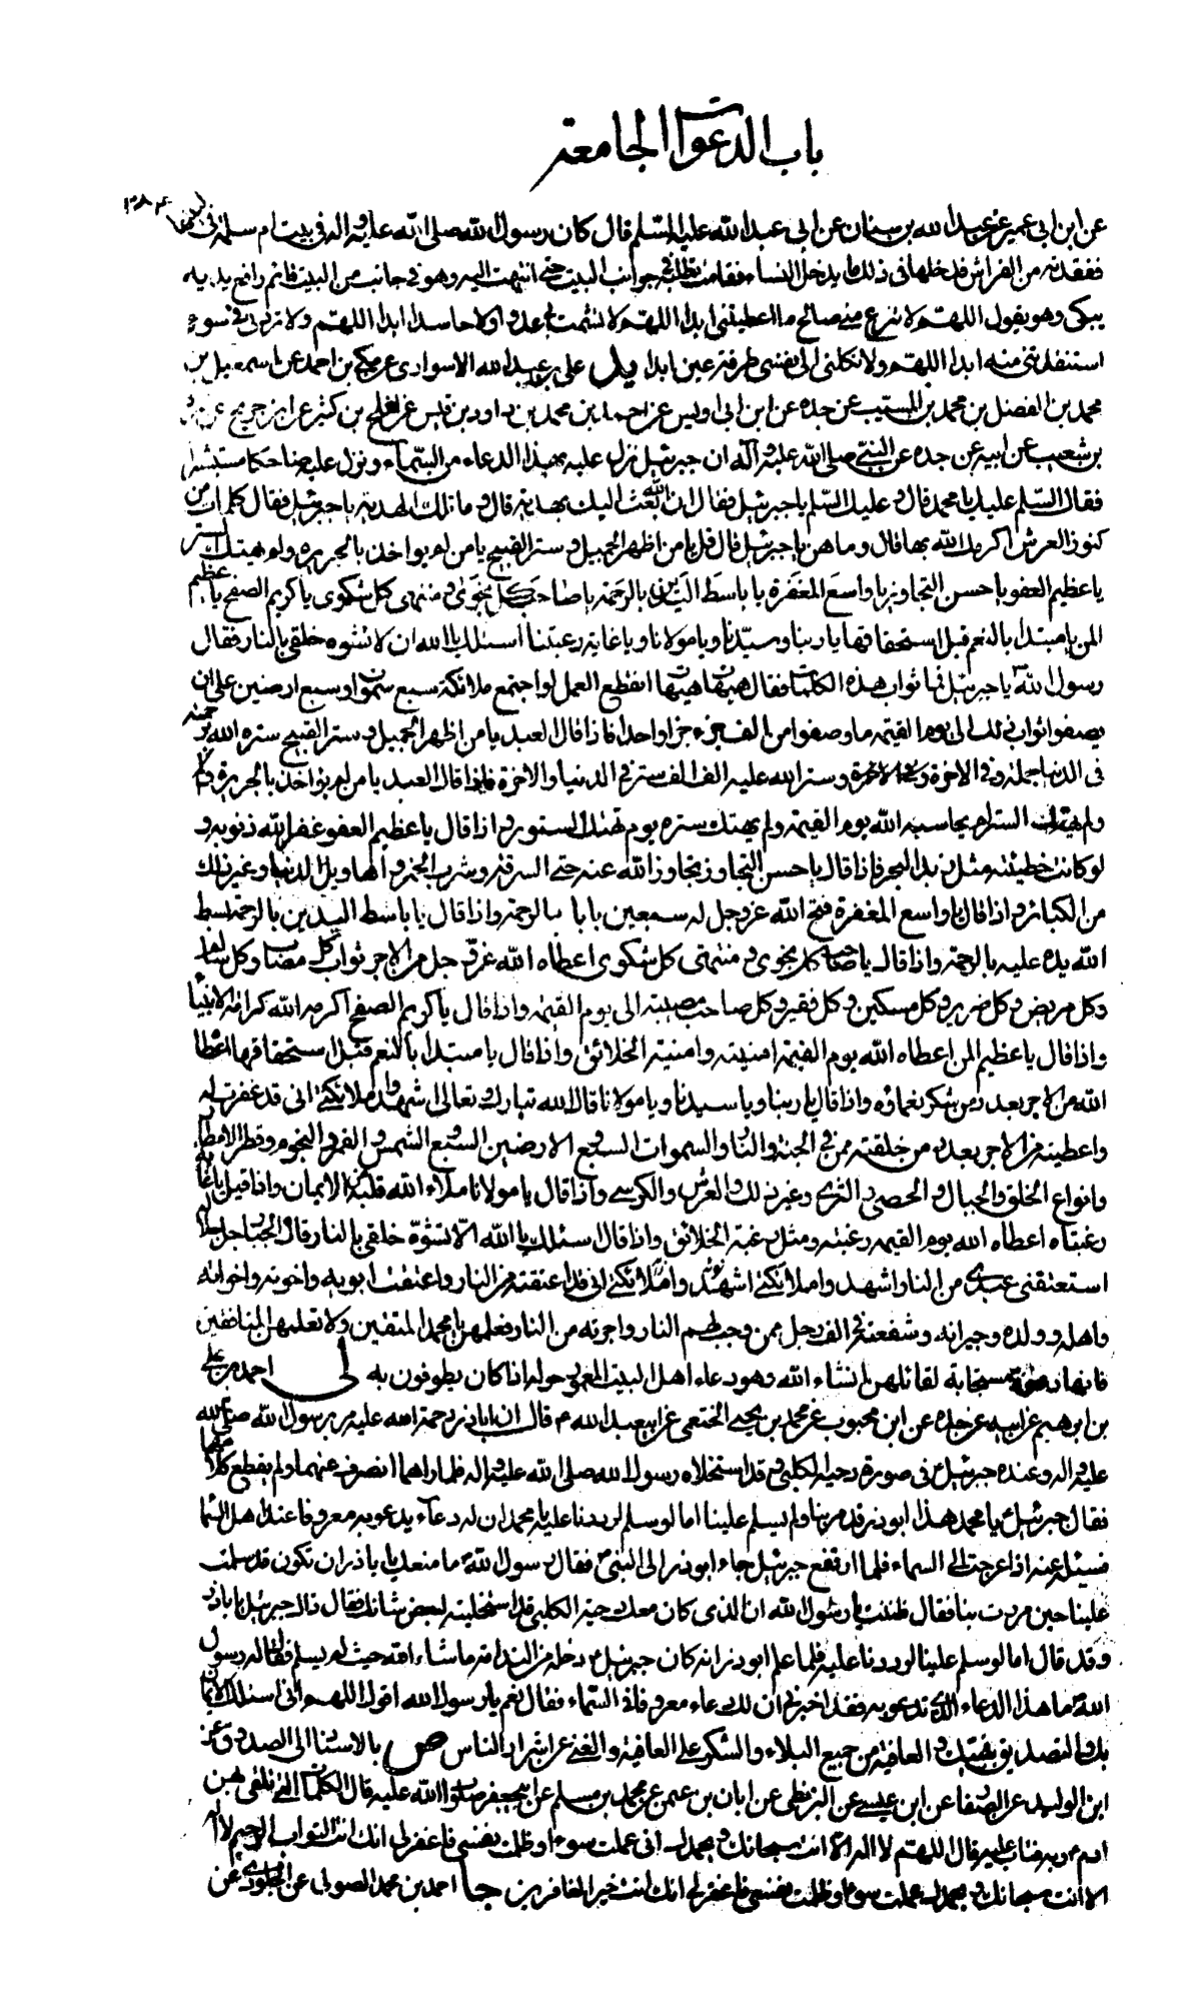 باب الدعوات الجامعة
عن ابن ابى عمير عن عبد الله بن سنان عن ابى عبد الله عليه السّلم قال كان رسول الله صلى الله عليه واله فى بيت ام سلمة فى ليلتها
ففقدته من الفراش فدخلها فى ذلك ما يدخل النساء فقامت تطلبه فى جوانب البيت حتى انتهت اليه وهو فى جانب من البيت قائم رافع يديه
يبكى وهو يقول اللهم لا تنزع منى صالح ما اعطيتنى ابدا اللهم لا تشمت بى عدوا ولا حاسدا ابدا اللهم ولا تردنى فى سوء
استنقذتنى منه ابدا اللهم ولا تكلنى الى نفسى طرفة عين ابدا يد على بن عبد الله الاسوارى عن مكى بن احمد عن اسمعيل بن
محمد بن الفضل بن محمد بن المسيب عن جده عن ابن ابى اويس عن احمد بن محمد بن داود بن قيس عن افلح بن كثير عن ابن جريح عن
بن شعيب عن ابيه عن جده عن النبى صلى الله عليه وآله ان جبرئيل نزل عليه بهذا الدعاء من السماء ونزل عليه ضاحكا مستبشرا
فقال السّلم عليك يا محمد قال وعليك السّلم يا جبرئيل فقال ان الله بعث اليك بهدية قال وما تلك الهدية يا جبرئيل فقال كلمات من
كنوز العرش اكرمك الله بها قال وما هن يا جبرئيل قال قل يا من اظهر الجميل وستر القبيح يا من لم يواخذ بالجريرة ولم يهتك الستر
يا عظيم العفو يا حسن التجاوز يا واسع المغفرة يا باسط اليدين بالرحمة يا صاحب كل نجوى ومنتهى كل شكوى يا كريم الصفح يا عظيم
المن يا مبتدا بالنعم قبل استحقاقها يا ربنا وسيّدنا ويا مولانا ويا غاية رغبتنا اسئلك يا الله ان لا تشوه خلقى بالنار فقال
رسول الله يا جبرئيل فما ثواب هذه الكلمات فقال هيهات هيهات انقطع العمل لو اجتمع ملائكة سبع سموات وسبع ارضين على ان
يصفوا ثواب ذلك الى يوم القيمة ما وصفوا من الف جزء جزا واحدا فاذا قال العبد يا من اظهر الجميل وستر القبيح ستره الله برحمته
فى الدنيا جمله وفى الاخرة وستر الله عليه الف الف ستر فى الدنيا والاخرة فاذا قال العبد يا من لم يواخذ بالجريرة
ولم يهتك الستر لم يحاسبه الله يوم القيمة ولم يهتك ستره يوم تهتك الستور واذا قال يا عظيم العفو غفر الله ذنوبه و
لو كانت خطيئته مثل زبد البحر فاذا قال يا حسن التجاوز تجاوز الله عنه حتى السرقة وشرب الخمر واهاويل الدنيا وغير ذلك
من الكبائر واذا قال يا واسع المغفرة فتح الله عز وجل له سبعين بابا بالرحمة واذا قال يا باسط اليدين بالرحمة بسط
الله يده عليه بالرحمة واذا قال يا صاحب كل نجوى ومنتهى كل شكوى اعطاه الله عز وجل من الاجر ثواب كل مصاب وكل سالم
وكل مريض وكل ضرير وكل مسكين وكل فقير وكل صاحب مصيبة الى يوم القيمة واذا قال يا كريم الصفح اكرمه الله كرامة الانبياء
واذا قال يا عظيم المن اعطاه الله يوم القيمة امنيته وامنية الخلائق واذا قال يا مبتدا بالنعم قبل استحقاقها اعطاه
الله من الاجر بعدد من شكر نعمائه واذا قال يا ربنا ويا سيدنا ويا مولانا قال الله تبارك وتعالى اشهدوا ملائكتى انى قد غفرت له
واعطيته من الاجر بعدد من خلقته ممن فى الجنة والنار والسموات السبع والارضين السبع والشمس والقمر والنجوم وقطر الامطار
وانواع الخلق والجبال والحصى والثرى وغير ذلك والعرش والكرسى واذا قال يا مولانا ملاء الله قلبه من الايمان واذا قيل يا غاية
رغبتاه اعطاه الله يوم القيمة رغبته ومثل رغبة الخلائق واذا قال اسئلك يا الله الا تشوّه خلقى بالنار قال الجبار جل جلاله
استعتقنى عبدى من النار اشهدوا ملائكتى انى قد اعتقته من النار واعتقت ابويه واخوته واخواته
واهله وولده وجيرانه وشفعته فى الف رجل ممن وجب لهم النار واجرته من النار فعلمهن يا محمد المتقين ولا تعلمهن المنافقين
فانها دعوة مستجابة لقائلهن انشاء الله وهو دعاء اهل البيت المعمور حوله اذا كان يطوفون به لى احمد بن على
بن ابرهيم عن ابيه عن جده عن ابن محبوب عن محمد بن يحيى الخثعمى عن ابى عبد الله م قال ان اباذر رحمة الله عليه مر برسول الله صلى الله
عليه واله وعنده جبرئيل فى صورة دحية الكلبى وقد استخلاه رسول الله صلى الله عليه واله فلما راهما انصرف عنهما ولم يقطع كلامهما
فقال جبرئيل يا محمد هذا ابوذر قد مر بنا ولم يسلم علينا اما لو سلم لرددنا عليه يا محمد ان له دعاء يدعو به معروفا عند اهل السماء
فسئله عنه اذا عرجت الى السماء فلما ارتفع جبرئيل جاء ابوذر الى النبى فقال رسول الله ما منعك يا باذر ان تكون قد سلمت
علينا حين مررت بنا فقال ظننت يا رسول الله ان الذى كان معك دحية الكلبى قد استخليته لبعض شانك فقال ذاك جبرئيل يا باذر
وقد قال اما لو سلم علينا لرددنا عليه فلما علم ابوذر انه كان جبرئيل دخله من الندامة ما شاء الله حيث لم يسلم فقال له رسول
الله ما هذا الدعاء الذى تدعو به فقد اخبرنى ان لك دعاء معروفا فى السماء فقال نعم يا رسول الله اقول اللهم انى اسئلك الايمان
بك والتصديق بنبيك والعافية من جميع البلاء والشكر على العافية والغنى عن اشرار الناس ص بالاسناد الى الصدوق عن
ابن الوليد عن الصفار عن ابن عيسى عن البزنطى عن ابان بن عثمن عن محمد بن مسلم عن ابى جعفر صلوات الله عليه قال الكلمات التى تلقى بهن
ادم ربه فتاب عليه قال اللهم لا اله الا انت سبحانك وبحمدك انى عملت سوءا وظلمت نفسى فاغفر لى انك انت التواب الرحيم لا اله
الا انت سبحانك وبحمدك عملت سوءا وظلمت نفسى فاغفر لى انك انت خير الغافرين جا احمد بن محمد الصولى عن الجلودى عن